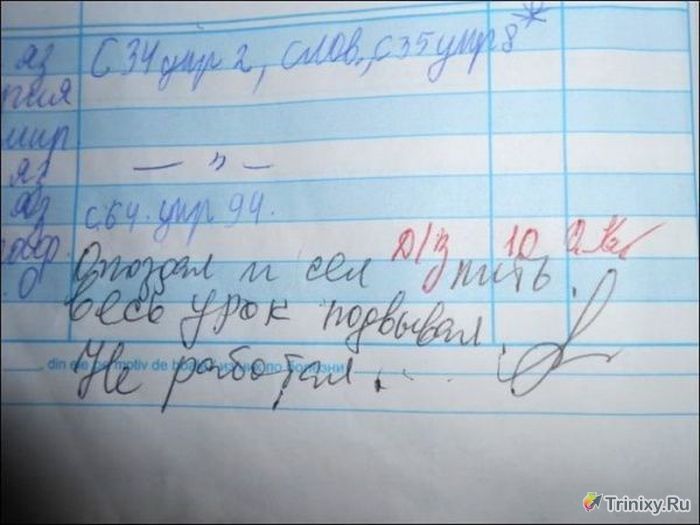 яз С 34 упр 2, слов., с 35 упр 8*
мир
яз — " —
яз с 64. упр 94.
Д/З 10
Опоздал и сел пить.
весь урок подвывал
Не работал.
Trinixy.Ru